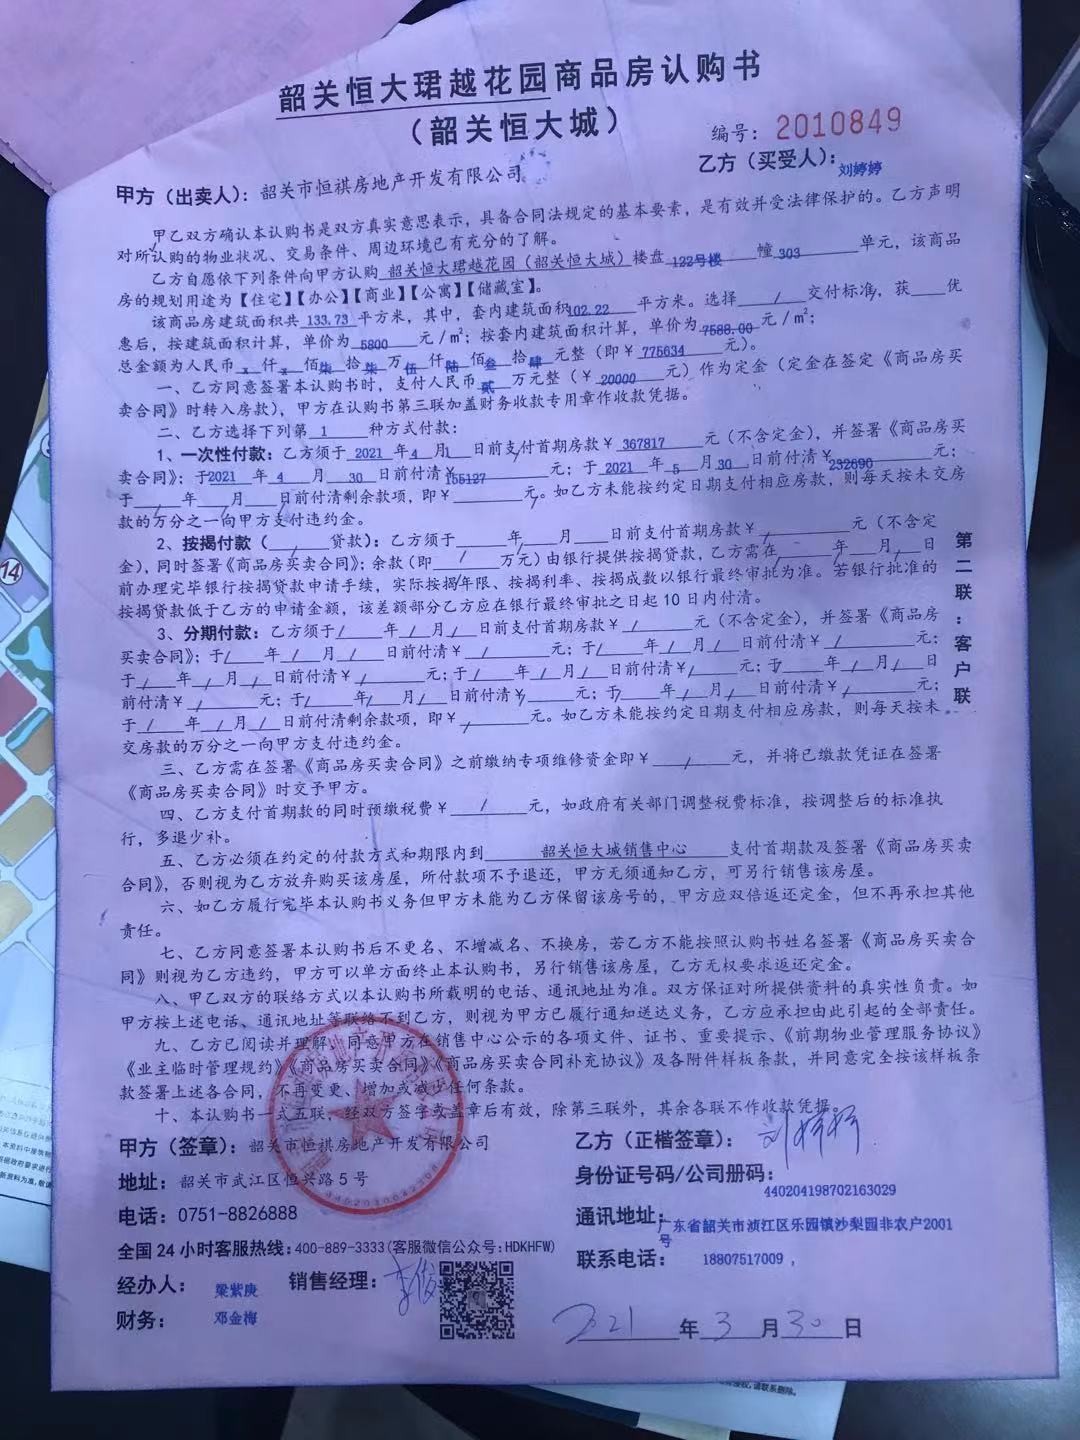 韶关恒大珺越花园商品房认购书
（韶关恒大城）
编号：2010849
甲方（出卖人）：韶关市恒祺房地产开发有限公司
乙方（买受人）：刘婷婷
甲乙双方确认本认购书是双方真实意思表示，具备合同法规定的基本要素，是有效并受法律保护的。乙方声明
对所认购的物业状况、交易条件、周边环境已有充分的了解。
乙方自愿依下列条件向甲方认购 韶关恒大珺越花园（韶关恒大城）楼盘 122号楼 幢 303 单元，该商品
房的规划用途为【住宅】【办公】【商业】【公寓】【储藏室】。
该商品房建筑面积共 133.73 平方米，其中，套内建筑面积102.22 平方米。选择 / 交付标准，获____优
惠后，按建筑面积计算，单价为 5800 元／m²；按套内建筑面积计算，单价为 7588.00 元／m²；
总金额为人民币 x 仟 x 佰 柒 拾 柒 万 伍 仟 陆 佰 叁 拾 肆 元整（即￥ 775634 元）。
一、乙方同意签署本认购书时，支付人民币 贰 万元整（￥ 20000 元）作为定金（定金在签定《商品房买
卖合同》时转入房款），甲方在认购书第三联加盖财务收款专用章作收款凭据。
二、乙方选择下列第 1 种方式付款：
1、一次性付款：乙方须于 2021 年 4 月 1 日前支付首期房款￥ 367817 元（不含定金），并签署《商品房买
卖合同》；于2021 年 4 月 30 日前付清￥155127 元；于 2021 年 5 月 30 日前付清￥232690 元；
于 / 年 / 月 / 日前付清剩余款项，即￥ ____元。如乙方未能按约定日期支付相应房款，则每天按未交房
款的万分之一向甲方支付违约金。
2、按揭付款（ / 贷款）：乙方须于____年 / 月 / 日前支付首期房款￥ / 元（不含定
金），同时签署《商品房买卖合同》；余款（即 / 万元）由银行提供按揭贷款，乙方需在 / 年 / 月 / 日
前办理完毕银行按揭贷款申请手续，实际按揭年限、按揭利率、按揭成数以银行最终审批为准。若银行批准的
按揭贷款低于乙方的申请金额，该差额部分乙方应在银行最终审批之日起 10 日内付清。
3、分期付款：乙方须于 / 年 / 月 / 日前支付首期房款￥ / 元（不含定金），并签署《商品房
买卖合同》；于 / 年 / 月 / 日前付清￥ / 元；于 / 年 / 月 / 日前付清￥ / 元；
于 / 年 / 月 / 日前付清￥ / 元；于 / 年 / 月 / 日前付清￥ / 元；于 / 年 / 月 / 日
前付清￥ / 元；于 / 年 / 月 / 日前付清￥ / 元；于 / 年 / 月 / 日前付清￥ / 元；
于 / 年 / 月 / 日前付清剩余款项，即￥ / 元。如乙方未能按约定日期支付相应房款，则每天按未
交房款的万分之一向甲方支付违约金。
三、乙方需在签署《商品房买卖合同》之前缴纳专项维修资金即￥ / 元，并将已缴款凭证在签署
《商品房买卖合同》时交予甲方。
四、乙方支付首期款的同时预缴税费￥ / 元，如政府有关部门调整税费标准，按调整后的标准执
行，多退少补。
五、乙方必须在约定的付款方式和期限内到 韶关恒大城销售中心 支付首期款及签署《商品房买卖
合同》，否则视为乙方放弃购买该房屋，所付款项不予退还，甲方无须通知乙方，可另行销售该房屋。
六、如乙方履行完毕本认购书义务但甲方未能为乙方保留该房号的，甲方应双倍返还定金，但不再承担其他
责任。
七、乙方同意签署本认购书后不更名、不增减名、不换房，若乙方不能按照认购书姓名签署《商品房买卖合
同》则视为乙方违约，甲方可以单方面终止本认购书，另行销售该房屋，乙方无权要求返还定金。
八、甲乙双方的联络方式以本认购书所载明的电话、通讯地址为准。双方保证对所提供资料的真实性负责。如
甲方按上述电话、通讯地址等联络不到乙方，则视为甲方已履行通知送达义务，乙方应承担由此引起的全部责任。
九、乙方已阅读并理解、同意甲方在销售中心公示的各项文件、证书、重要提示、《前期物业管理服务协议》
《业主临时管理规约》《商品房买卖合同》《商品房买卖合同补充协议》及各附件样板条款，并同意完全按该样板条
款签署上述各合同，不再变更、增加或减少任何条款。
十、本认购书一式五联，经双方签字或盖章后有效，除第三联外，其余各联不作收款凭据。
第二联：客户联
甲方（签章）：韶关市恒祺房地产开发有限公司
地址：韶关市武江区恒兴路 5 号
电话：0751-8826888
全国 24 小时客服热线：400-889-3333（客服微信公众号：HDKHFW）
经办人：梁紫庚 销售经理：李俊
财务：邓金梅
乙方（正楷签章）：刘婷婷
身份证号码/公司册码：440204198702163029
通讯地址：广东省韶关市浈江区乐园镇沙梨园非农户2001
号
联系电话：18807517009，
2021 年 3 月 30 日
14